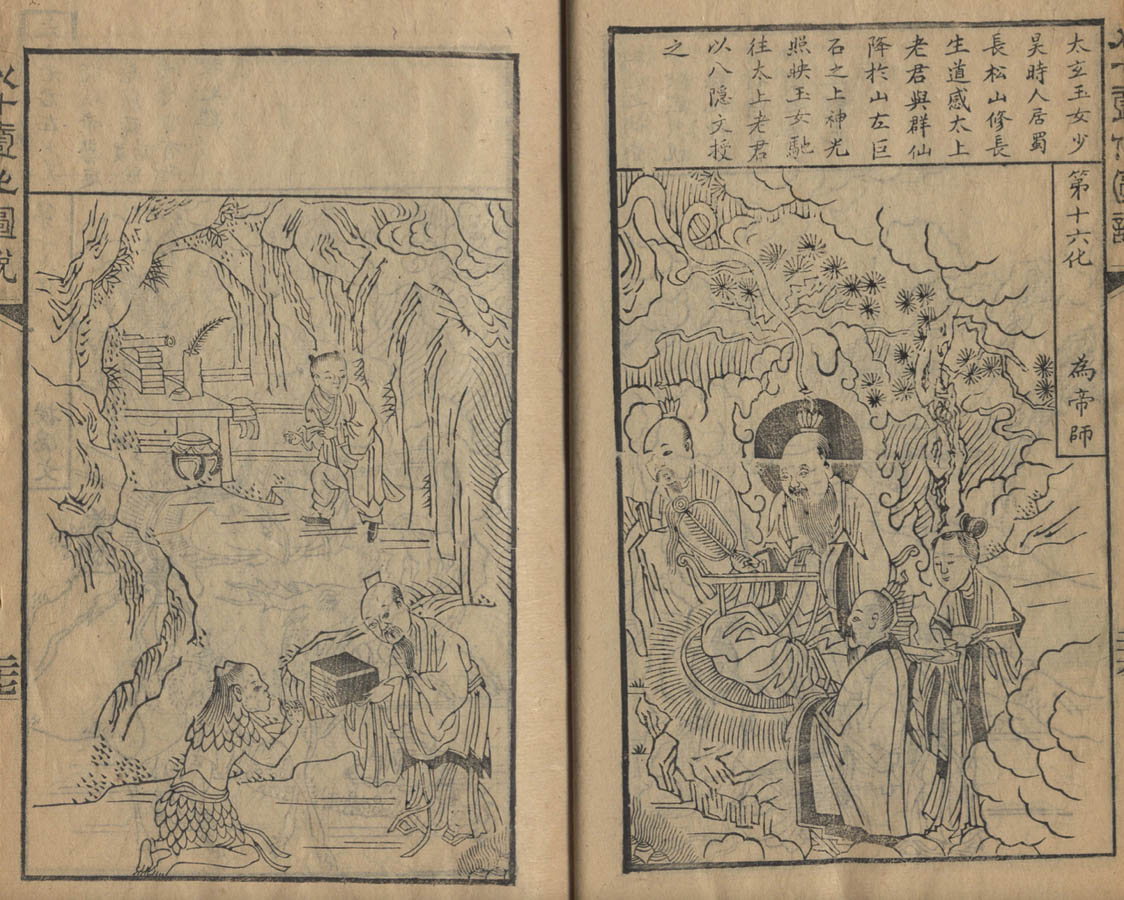 太玄玉女少
昊時人居蜀
長松山修長
生道感太上
老君與群仙
降於山左巨
石之上神光
照映玉女馳
往太上老君
以八隱文授
之
第十六化 為帝師
化圖說